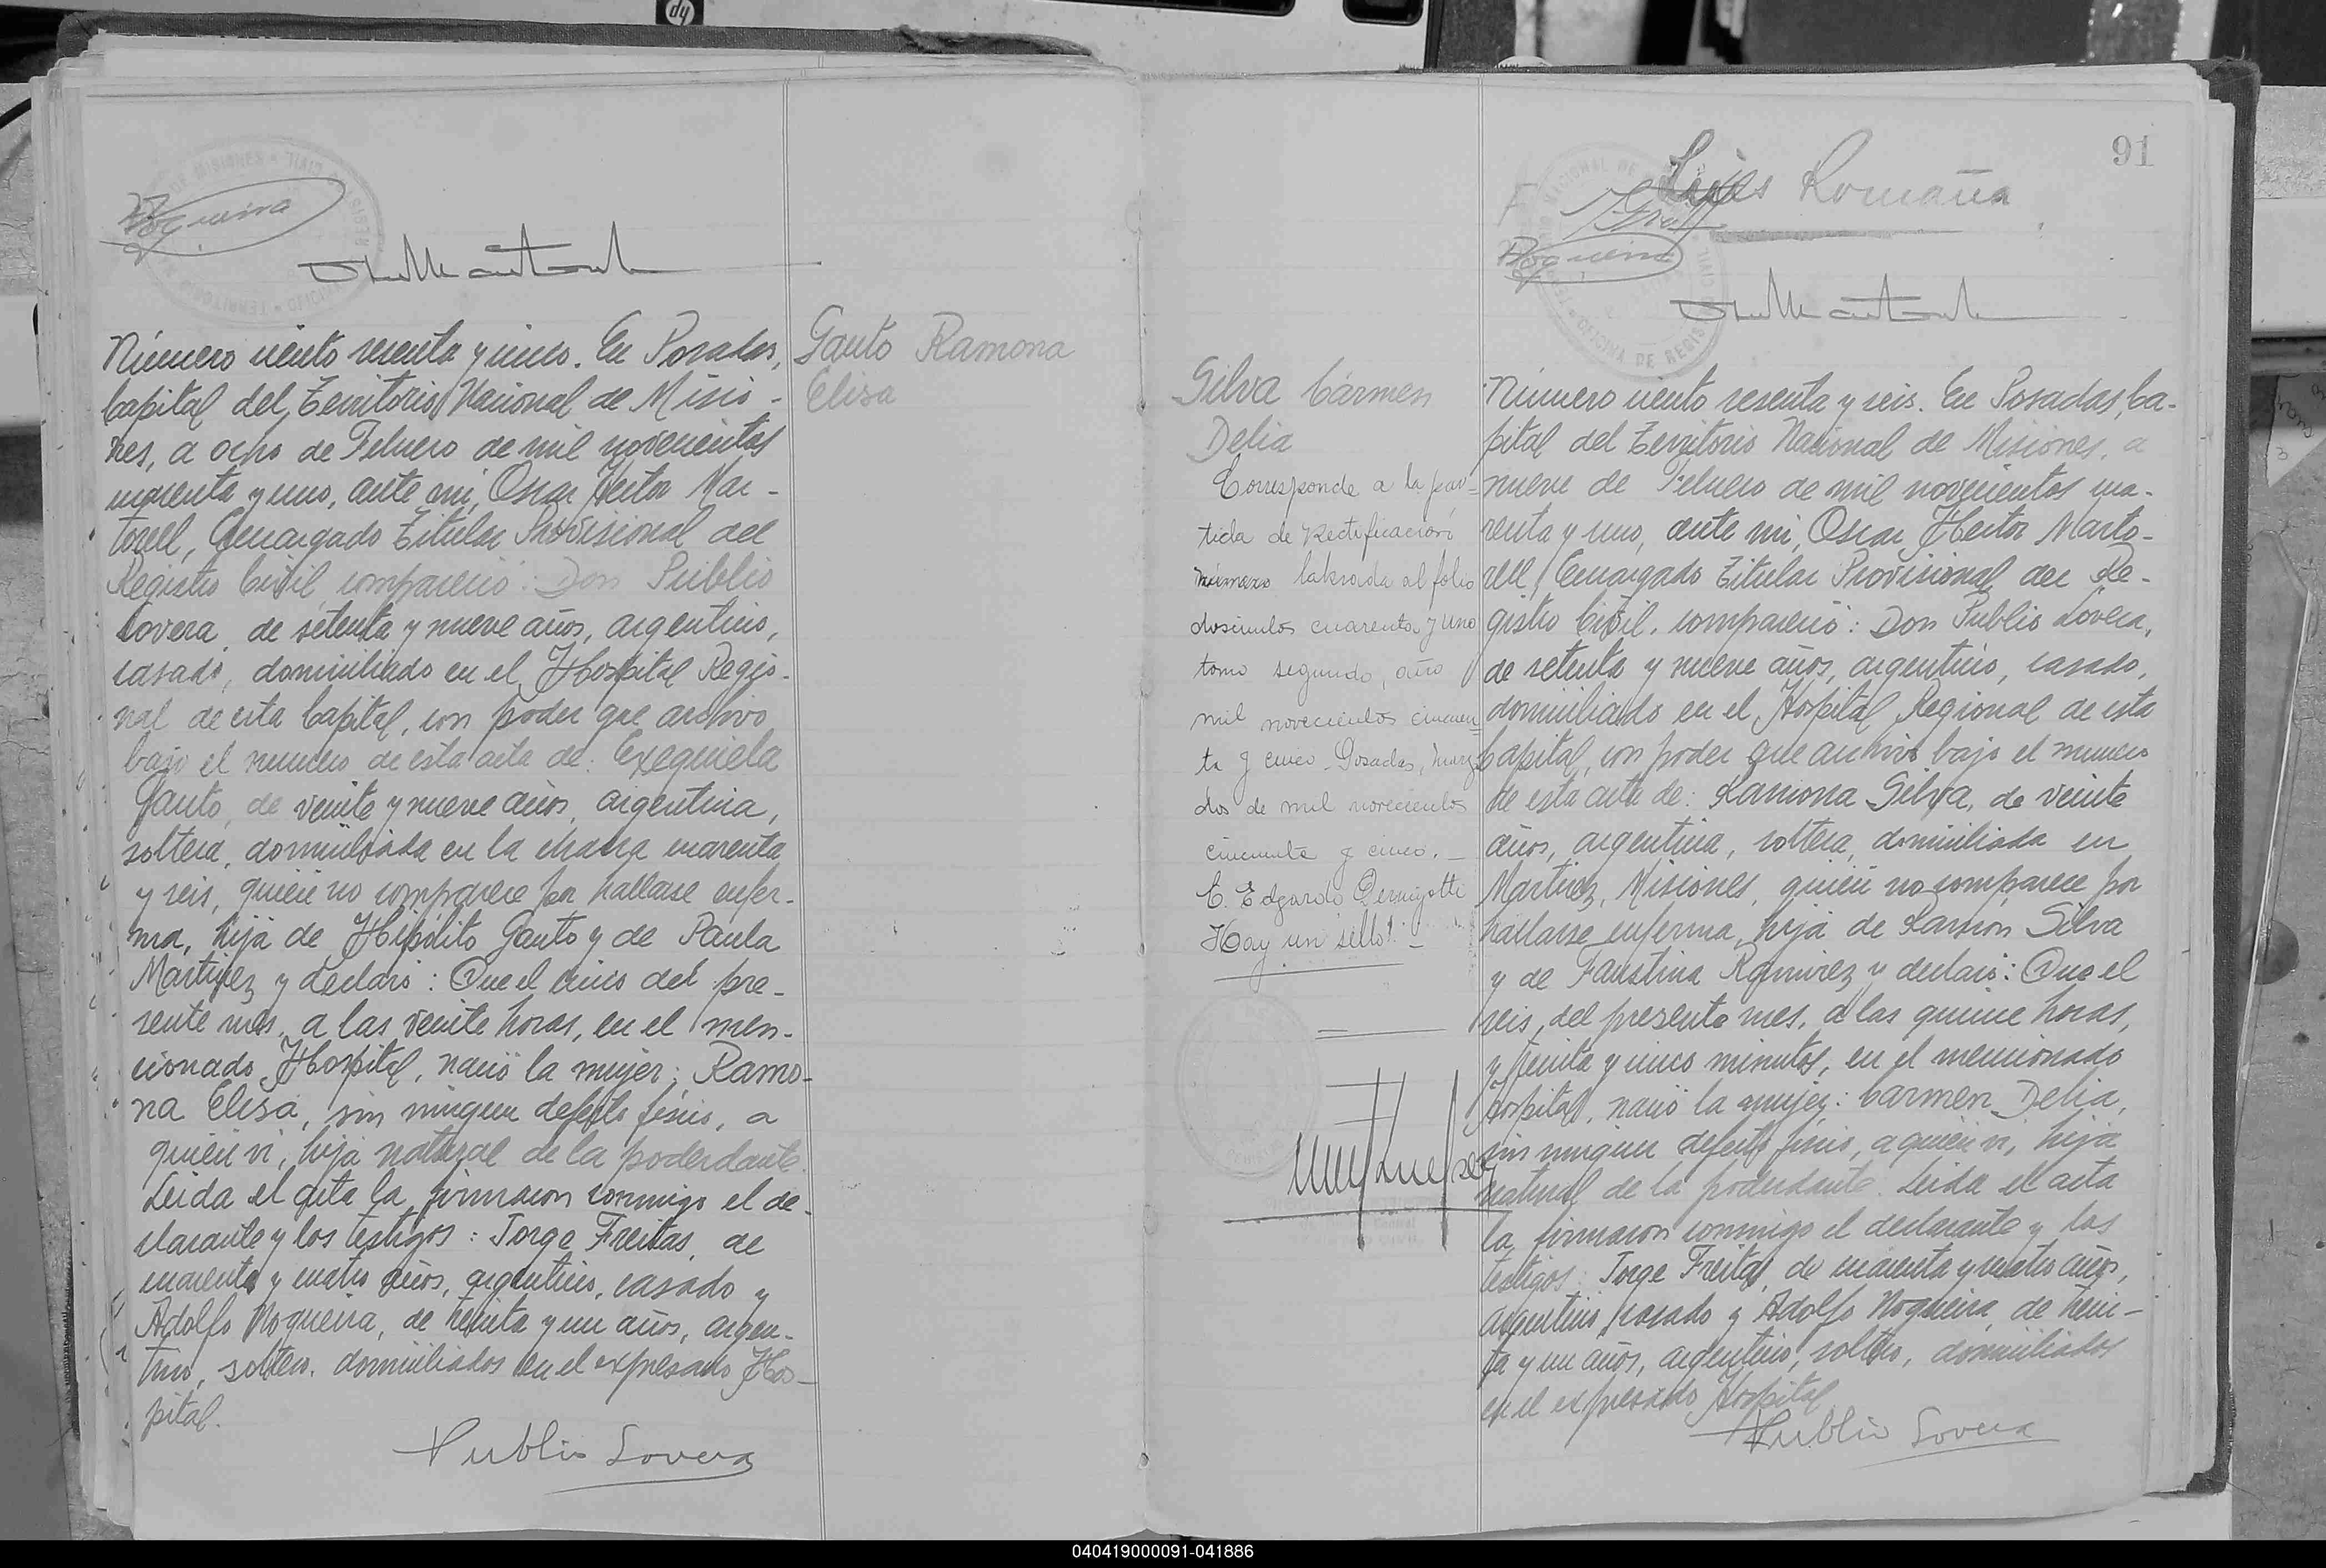 dy
Nogueira
Número ciento sesenta y cinco. En Posadas,
Capital del Territorio Nacional de Misio-
nes, a ocho de Febrero de mil novecientos
cuarenta y uno, ante mi, Oscar Hector Mar-
torell, Encargado Titular Provisional del
Registro Civil, compareció: Don Publio
Lovera, de setenta y nueve años, argentino,
casado, domiciliado en el Hospital Regio-
nal de esta Capital, con poder que archivo
bajo el numero de esta acta de: Exequiela
Gauto, de veinte y nueve años, argentina,
soltera, domiciliada en la chacra cuarenta
y seis, quién no comparece por hallarse enfer-
ma, hija de Hipólito Gauto y de Paula
Martinez y declaró: Que el cinco del pre-
sente mes, a las veinte horas, en el men-
cionado Hospital, nació la mujer: Ramo-
na Elisa, sin ningun defecto físico, a
quién vi, hija natural de la poderdante.
Leida el acta la firmaron conmigo el de-
clarante y los testigos: Jorge Freitas, de
cuarenta y cuatro años, argentino, casado y
Adolfo Nogueira, de treinta y un años, argen-
tino, soltero, domiciliados en el expresado Hos-
pital.
Publio Lovera
Gauto Ramona
Elisa
91
Romaña
Nogueira
Silva Carmen
Delia
Corresponde a la par-
tida de Rectificación
número labrada al folio
doscientos cuarenta y uno
tomo segundo, año
mil novecientos cincuen
ta y cinco. Posadas, marzo
dos de mil novecientos
cincuenta y cinco. _
E. Edgardo
Hay un sello: _
Número ciento sesenta y seis. En Posadas, Ca-
pital del Territorio Nacional de Misiones, a
nueve de Febrero de mil novecientos cua-
renta y uno, ante mi, Oscar Hector Marto-
rell, Encargado Titular Provisional del Re-
gistro Civil, compareció: Don Publio Lovera,
de setenta y nueve años, argentino, casado,
domiciliado en el Hospital Regional de esta
Capital, con poder que archivo bajo el numero
de esta acta de: Ramona Silva, de veinte
años, argentina, soltera, domiciliada en
Martires, Misiones, quién no comparece por
hallarse enferma, hija de Ramon Silva
y de Faustina Ramirez y declaró: Que el
seis, del presente mes, a las quince horas,
y treinta y cinco minutos, en el mencionado
Hospital, nació la mujer: Carmen Delia,
sin ningun defecto físico, a quién vi, hija
natural de la poderdante. Leida el acta
la firmaron conmigo el declarante y los
testigos: Jorge Freitas, de cuarenta y cuatro años,
argentino, casado y Adolfo Nogueira, de trein-
ta y un años, argentino, soltero, domiciliados
en el expresado Hospital
Publio Lovera
040419000091-041886